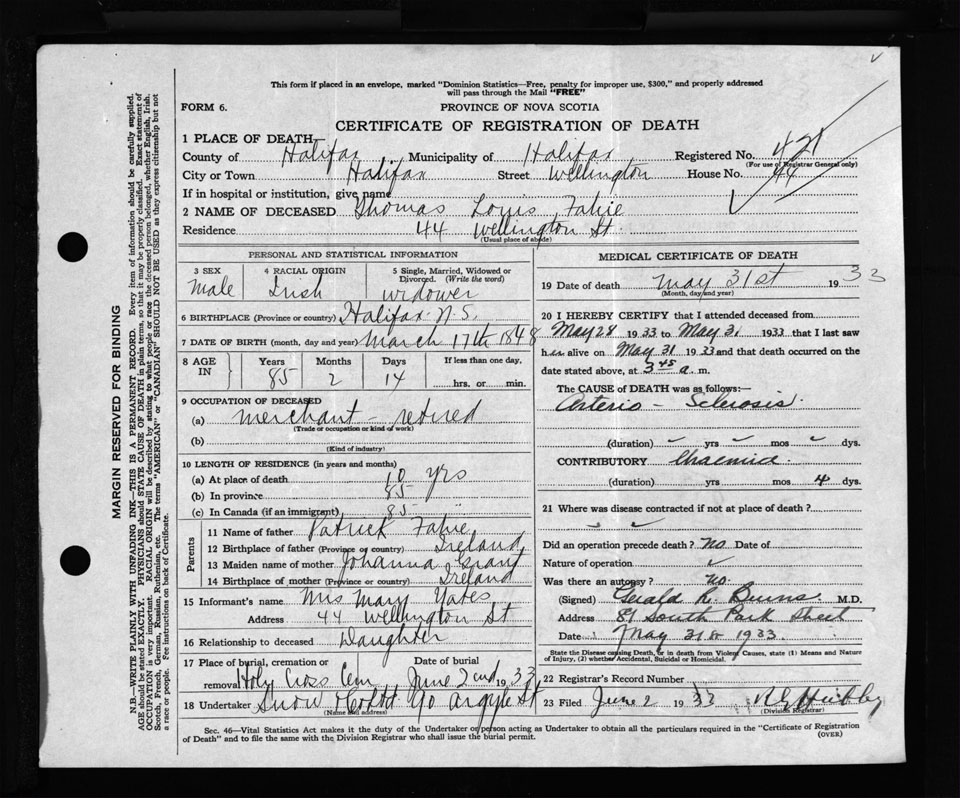 This form if placed in an envelope, marked "Dominion Statistics—Free, penalty for improper use, $300," and properly addressed
will pass through the Mail "FREE"
FORM 6.
PROVINCE OF NOVA SCOTIA
CERTIFICATE OF REGISTRATION OF DEATH
1 PLACE OF DEATH—
County of Halifax Municipality of Halifax Registered No. 421
(For use of Registrar General only)
City or Town Halifax Street Wellington House No. 44
If in hospital or institution, give name
2 NAME OF DECEASED Thomas Louis Fahie
Residence 44 Wellington St.
(Usual place of abode)
PERSONAL AND STATISTICAL INFORMATION
3 SEX 4 RACIAL ORIGIN 5 Single, Married, Widowed or
Divorced. (Write the word)
Male Irish widower
6 BIRTHPLACE (Province or country) Halifax N.S.
7 DATE OF BIRTH (month, day and year) March 17th 1848
8 AGE IN Years Months Days If less than one day,
85 2 14 hrs. or min.
9 OCCUPATION OF DECEASED
(a) merchant – retired
(Trade or occupation or kind of work)
(b)
(Kind of industry)
10 LENGTH OF RESIDENCE (in years and months)
(a) At place of death 10 yrs
(b) In province 85
(c) In Canada (if an immigrant) 85
Parents
11 Name of father Patrick Fahie
12 Birthplace of father (Province or country) Ireland
13 Maiden name of mother Johanna Grant
14 Birthplace of mother (Province or country) Ireland
15 Informant's name Mrs Mary Yates
Address 44 Wellington St
16 Relationship to deceased Daughter
17 Place of burial, cremation or Date of burial
removal Holy Cross Cem June 2cnd 1933
18 Undertaker Snow & Co Ltd 90 Argyle St
(Name and address)
MEDICAL CERTIFICATE OF DEATH
19 Date of death May 31st 1933
(Month, day and year)
20 I HEREBY CERTIFY that I attended deceased from
May 28 1933 to May 31 1933 that I last saw
him alive on May 31 1933 and that death occurred on the
date stated above, at 3 45 a. m.
The CAUSE OF DEATH was as follows:—
Arterio – Sclerosis.
(duration) yrs mos dys.
CONTRIBUTORY Uraemia.
(duration) yrs mos 4 dys.
21 Where was disease contracted if not at place of death?
Did an operation precede death? No Date of
Nature of operation
Was there an autopsy? no.
(Signed) Gerald R. Burns M.D.
Address 81 South Park Street
Date May 31st 1933.
State the Disease causing Death, or in death from Violent Causes, state (1) Means and Nature
of Injury, (2) whether Accidental, Suicidal or Homicidal.
22 Registrar's Record Number
23 Filed June 2 1933
(Division Registrar)
Sec. 46—Vital Statistics Act makes it the duty of the Undertaker or person acting as Undertaker to obtain all the particulars required in the "Certificate of Registration
of Death" and to file the same with the Division Registrar who shall issue the burial permit.
(OVER)
MARGIN RESERVED FOR BINDING
N.B.—WRITE PLAINLY WITH UNFADING INK—THIS IS A PERMANENT RECORD. Every item of information should be carefully supplied.
AGE should be stated EXACTLY. PHYSICIANS should STATE CAUSE OF DEATH in plain terms, so that it may be properly classified. Exact statement of
OCCUPATION is very important. RACIAL ORIGIN will be described by stating to what people or race the deceased person belonged, whether English, Irish,
Scotch, French, German, Russian, Ruthenian, etc. The terms "AMERICAN" or "CANADIAN" SHOULD NOT BE USED as they express citizenship but not
a race or people. See instructions on back of Certificate.